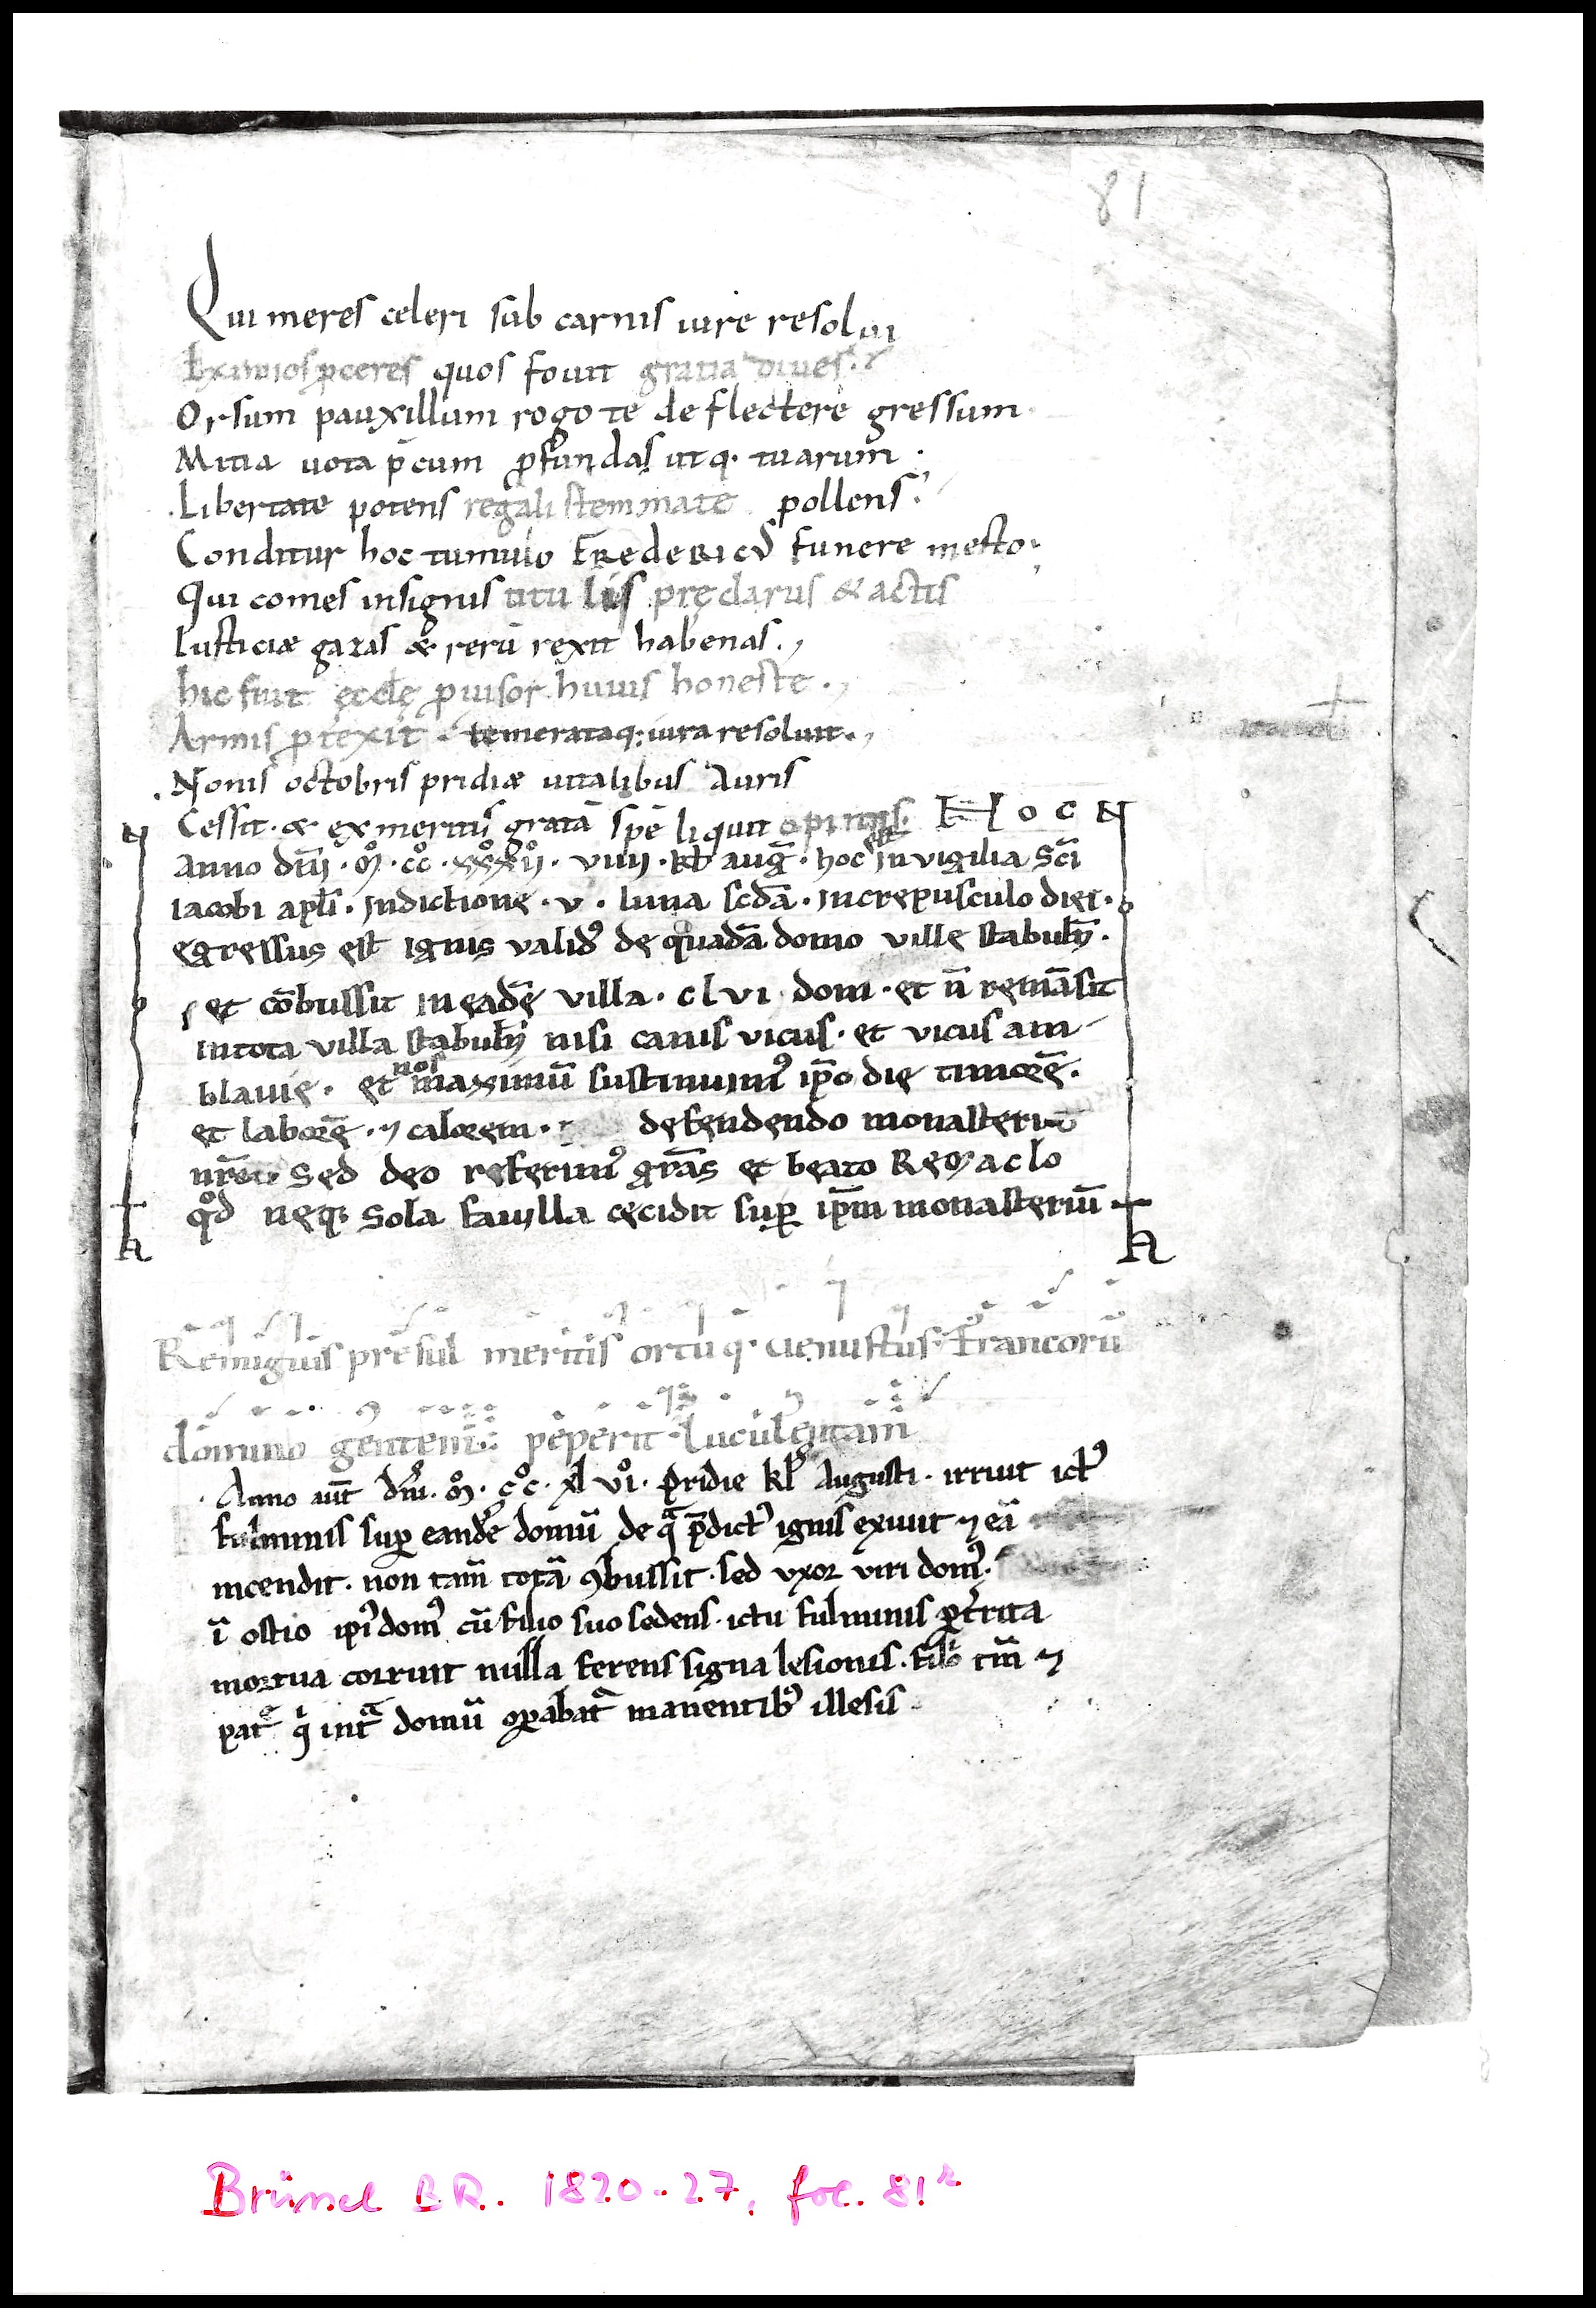 81
Qui meres celeri sub carnis iure resolui
Eximios ꝓceres quos fouit gratia diues.
Orsum pauxillum rogo te deflectere gressum
Mitia uota p̄cum ꝓfundas utq. tuarum.
Libertate potens regali stemmate pollens.
Conditur hoc tumulo FREdERICꝰ funere mesto.
Qui comes insignis titulis pręclarus & actis
Iusticiæ gazas & rerū rexit habenas.
hic fuit ęccl̄ę ꝓuisor huius honeste.
Armis ꝓtexit. temerataq; iura resoluit.
Nonis octobris pridiæ uitalibus auris
Cessit. & ex meritis gratā spē liquit opimis. H O C N
N
Anno dn̄i. ꝳ. cc̊. xxxii̊. viiii. kl̄ auḡ. hoc est in vigilia sc̄i
iacobi apl̄i. indictione. v. luna scd̄a. in crepusculo diei.
egressus est ignis validꝰ de quadā domo ville stabul̄.
et cōbussit in eadē villa. clvi. dom. et n̄ remāsit
in tota villa stabul̄ nisi canis vicus. et vicus am-
blauie. et nos maximū sustinuimꝰ ip̄o die timorē.
et laborē. ⁊ calorem. defendendo monasteriū
nr̄m. Sed deo referimꝰ gr̄as et beato Remaclo
qd̊ neq. sola fauilla cecidit suꝑ ip̄m monasteriū
A A
Remigius presul meritis ortuq. uenustus. Francorū
domino gentem peperit luculentam
Anno aut̄ dn̄i. ꝳ. cc̊. xl vi̊. pridie kl̄ augusti. irruit ictꝰ
fulminis suꝑ eandē domū de qᵃ p̄dictꝰ ignis exiuit ⁊ eā
incendit. non tam̄ totā ꝯbussit. sed vxor viri domꝰ.
ī ostio ipiꝰ domꝰ cū filio suo sedens. ictu fulminis ꝑt̄rita
mortua corruit nulla ferens signa lesionis. filio tm̄ ⁊
pat̄ qⁱ intᵃ domū oꝑabat᷑ manentibꝰ illesis.
Brüssel B.R. 1820-27, fol. 81ʳ